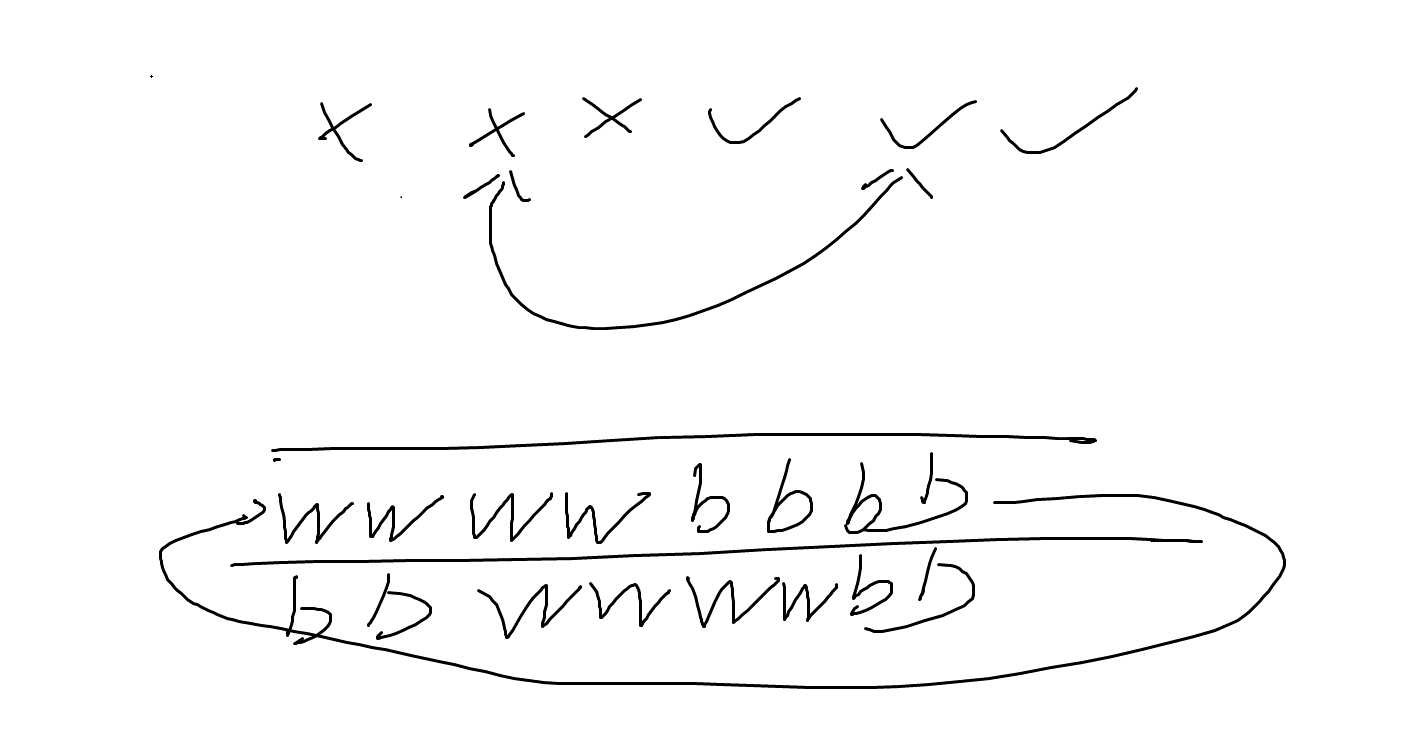 x x x ✓ ✓ ✓
w w w w b b b b
b b w w w w b b